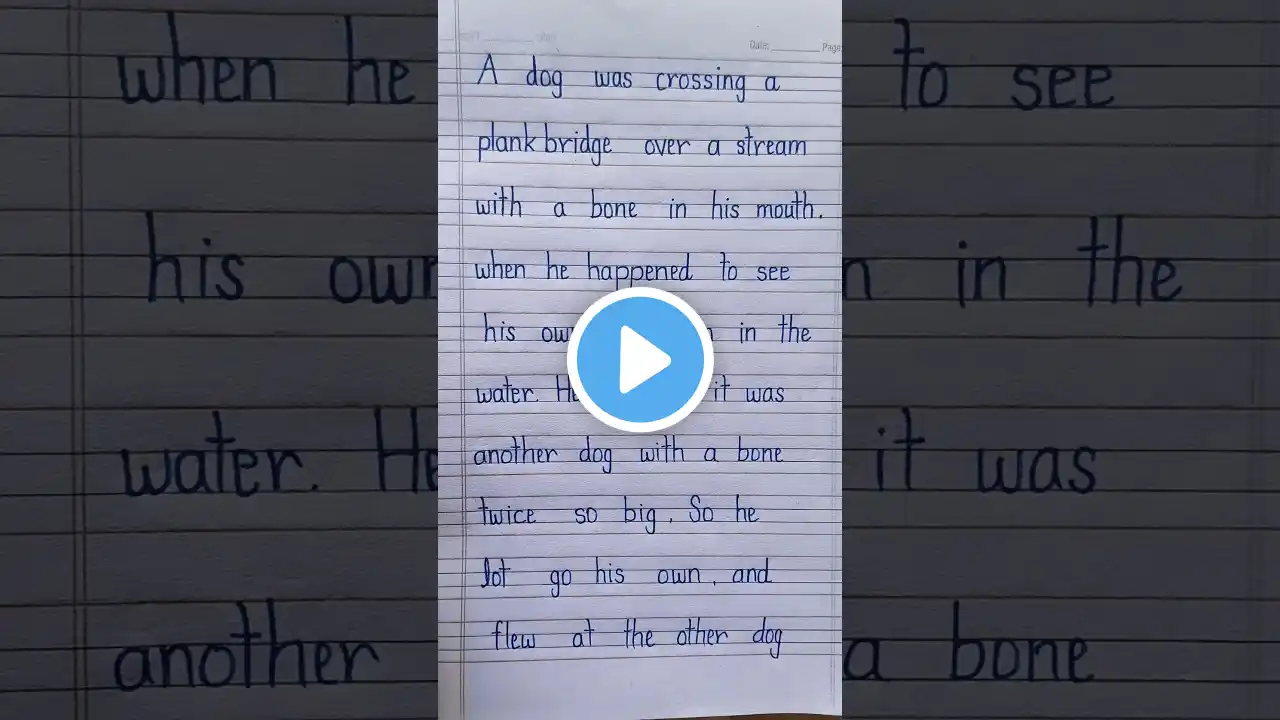 Date: Page
A dog was crossing a
plank bridge over a stream
with a bone in his mouth.
when he happened to see
his own in the
water. He it was
another dog with a bone
twice so big. So he
lot go his own, and
flew at the other dog